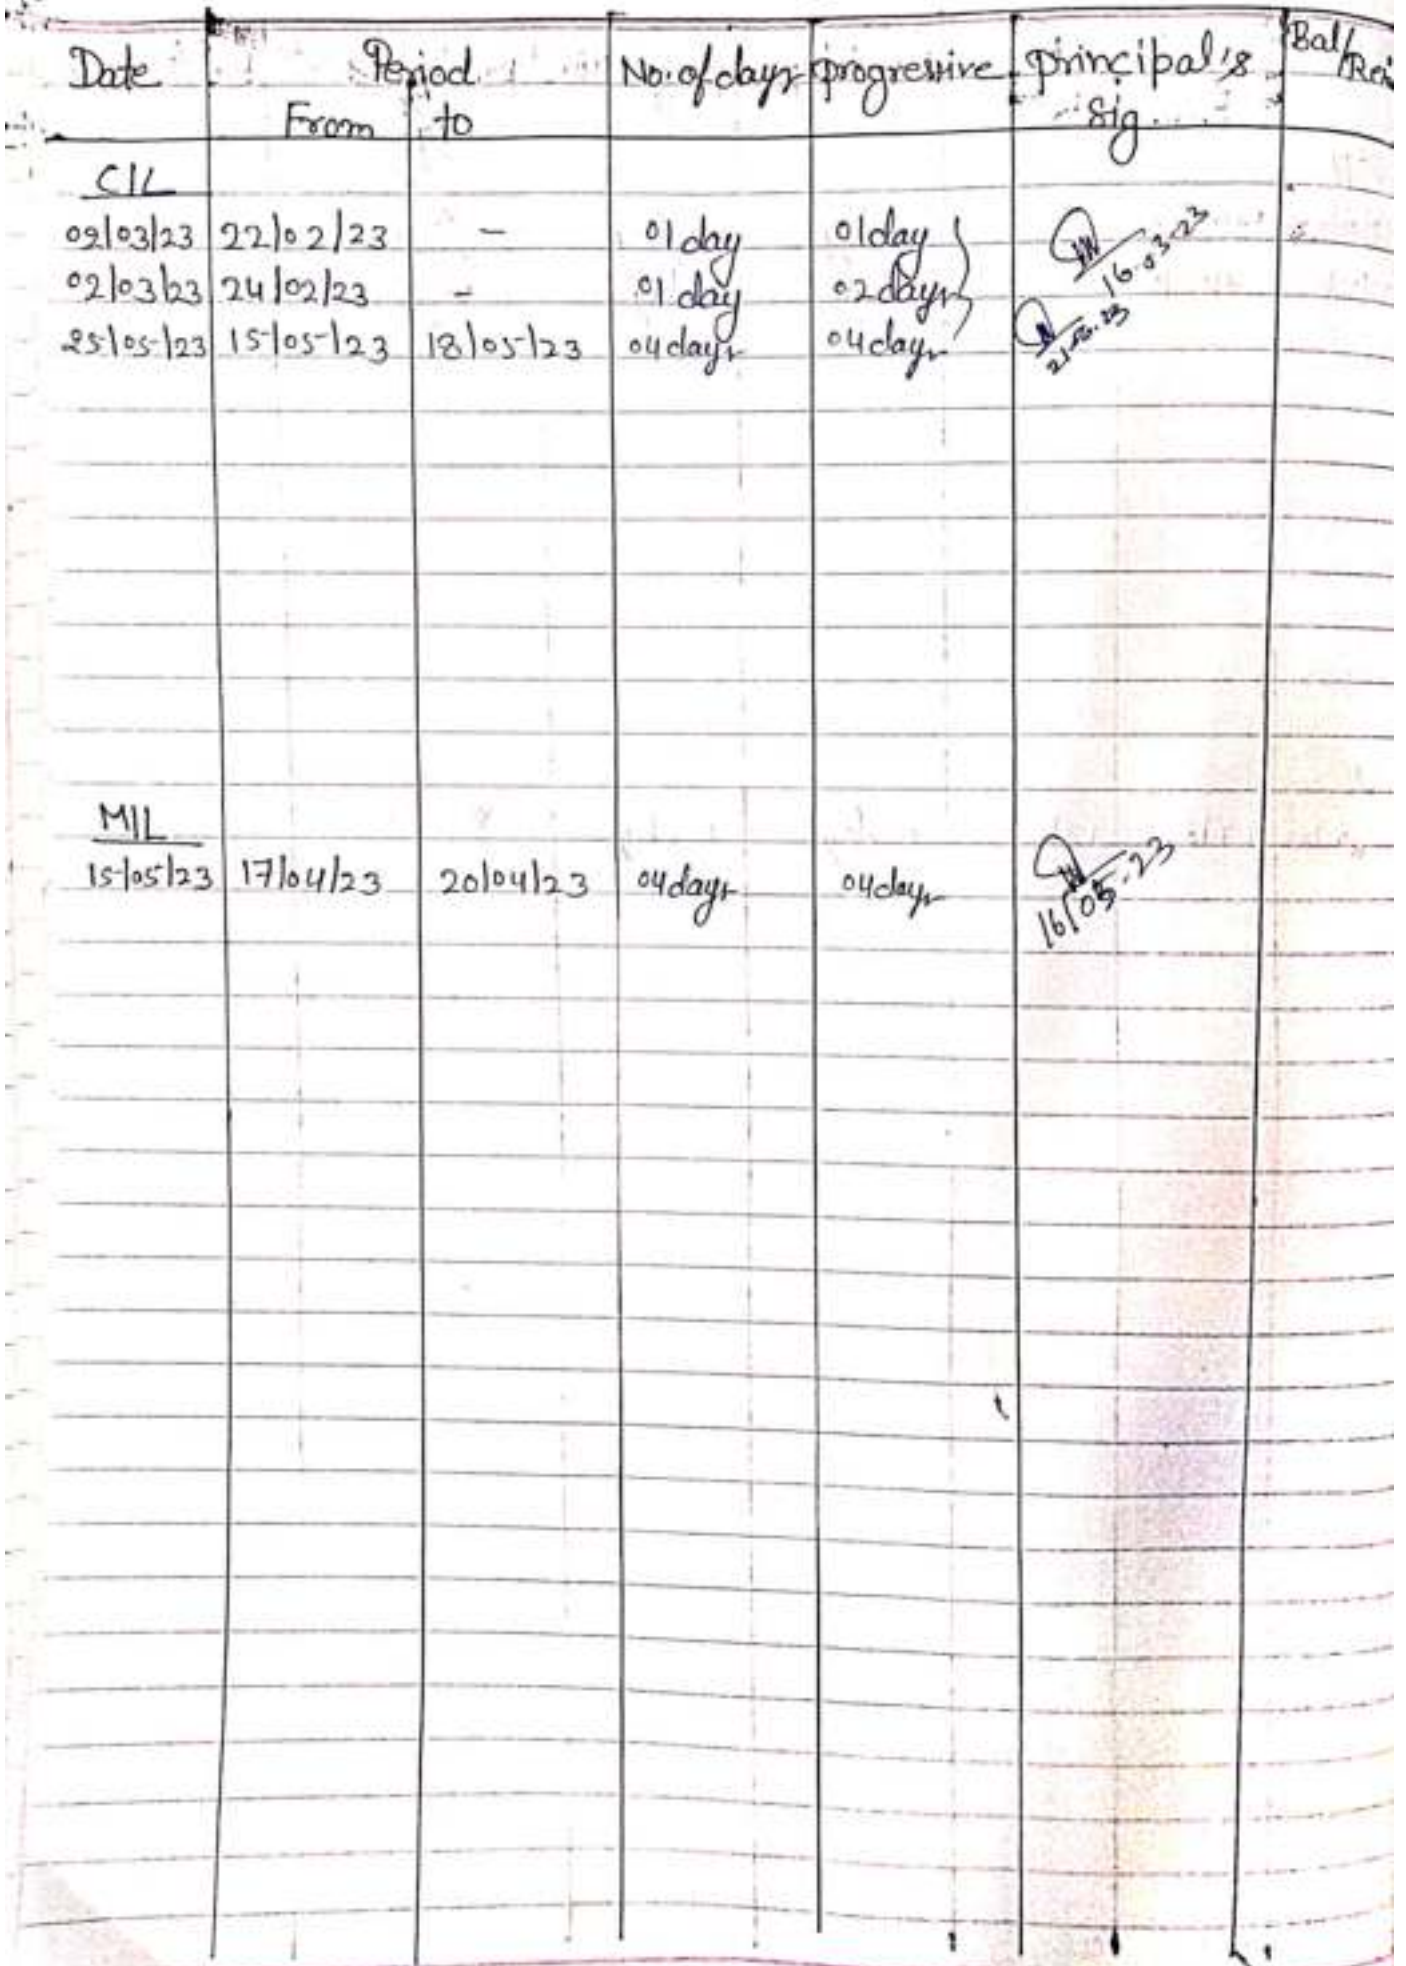 Date Period No. of days progressive principal's Bal/
From to sig
C|L
02/03/23 22/02/23 - 01 day 01 day 16.03.23
02/03/23 24/02/23 - 01 day 02 days
25/05/23 15/05/23 18/05/23 04 days 04 days
M|L
15/05/23 17/04/23 20/04/23 04 days 04 days
16/05.23